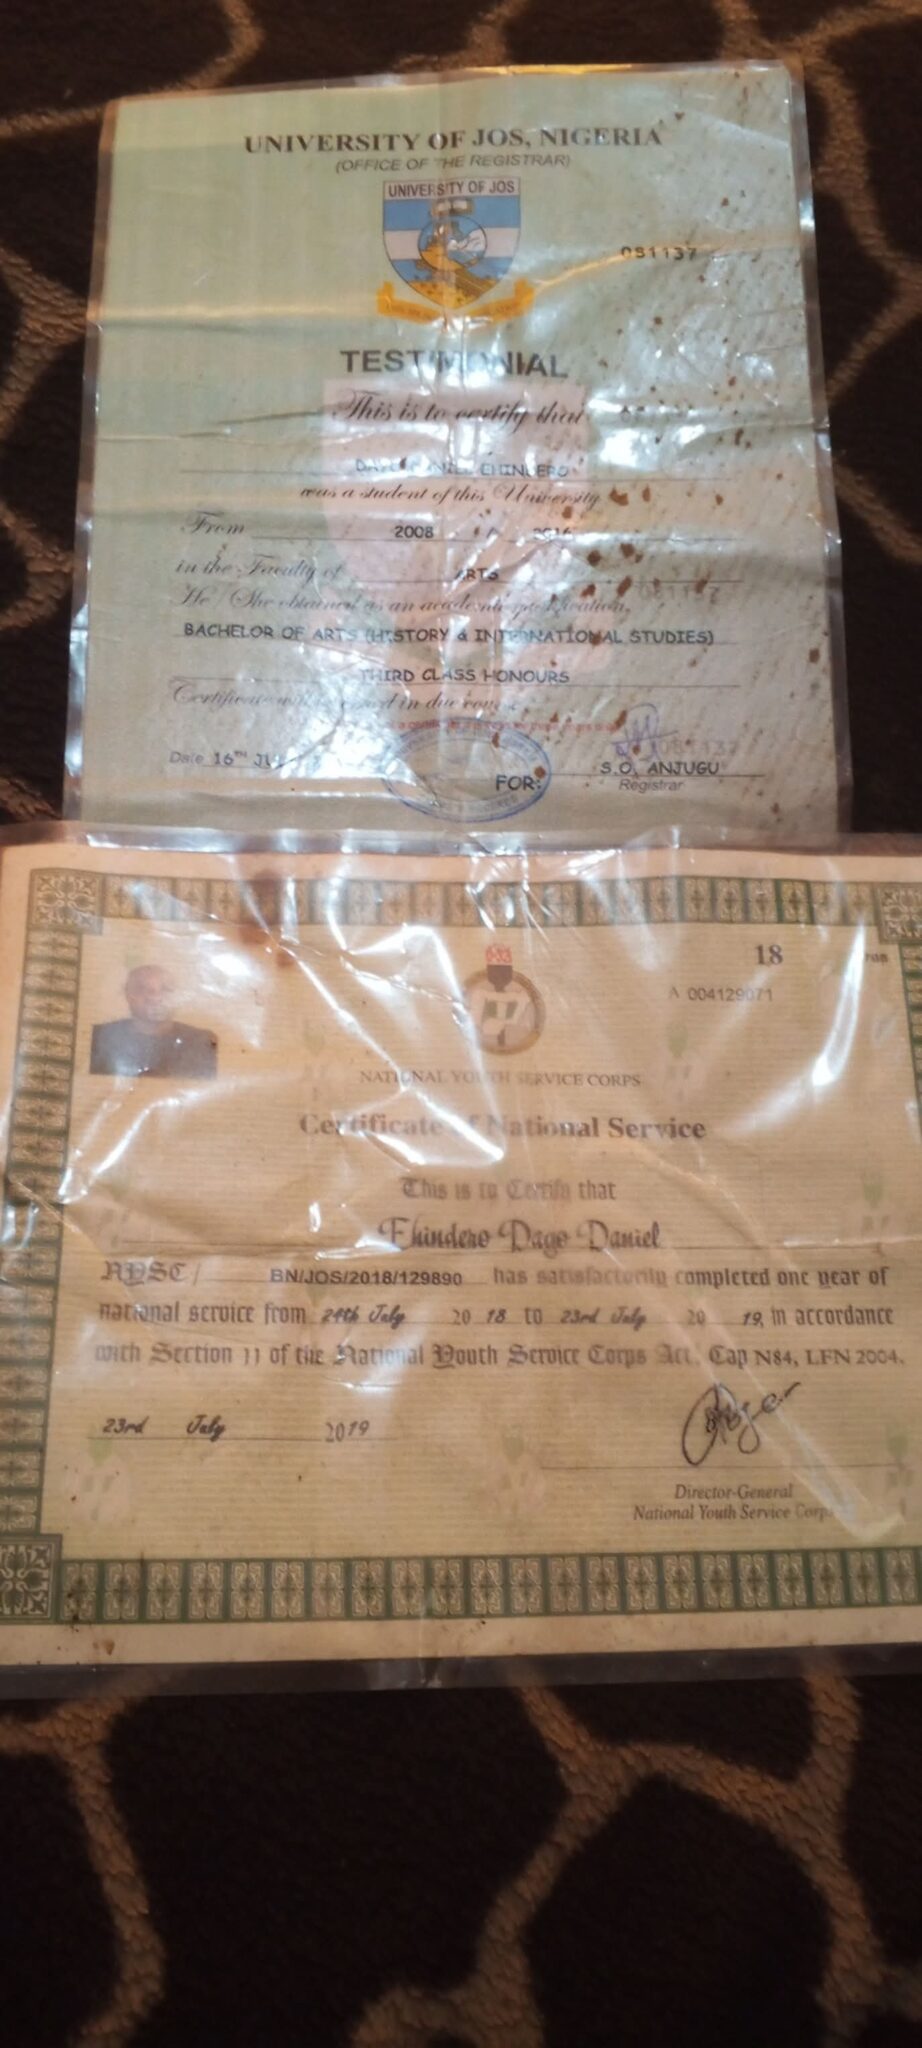 UNIVERSITY OF JOS, NIGERIA
(OFFICE OF THE REGISTRAR)
UNIVERSITY OF JOS
081137
TESTIMONIAL
This is to certify that
EHINDERO
was a student of this University
From 2008 2016
in the Faculty of ARTS
He / She obtained as an academic qualification,
BACHELOR OF ARTS (HISTORY & INTERNATIONAL STUDIES)
THIRD CLASS HONOURS
Certificate will be issued in due course
Date 16TH FOR: S.O. ANJUGU
Registrar
18
A 004129071
NATIONAL YOUTH SERVICE CORPS
Certificate of National Service
This is to Certify that
Ehindero Dayo Daniel
NYSC/ BN/JOS/2018/129890 has satisfactorily completed one year of
national service from 24th July 20 18 to 23rd July 20 19, in accordance
with Section 11 of the National Youth Service Corps Act, Cap N84, LFN 2004.
23rd July 2019
Director-General
National Youth Service Corps